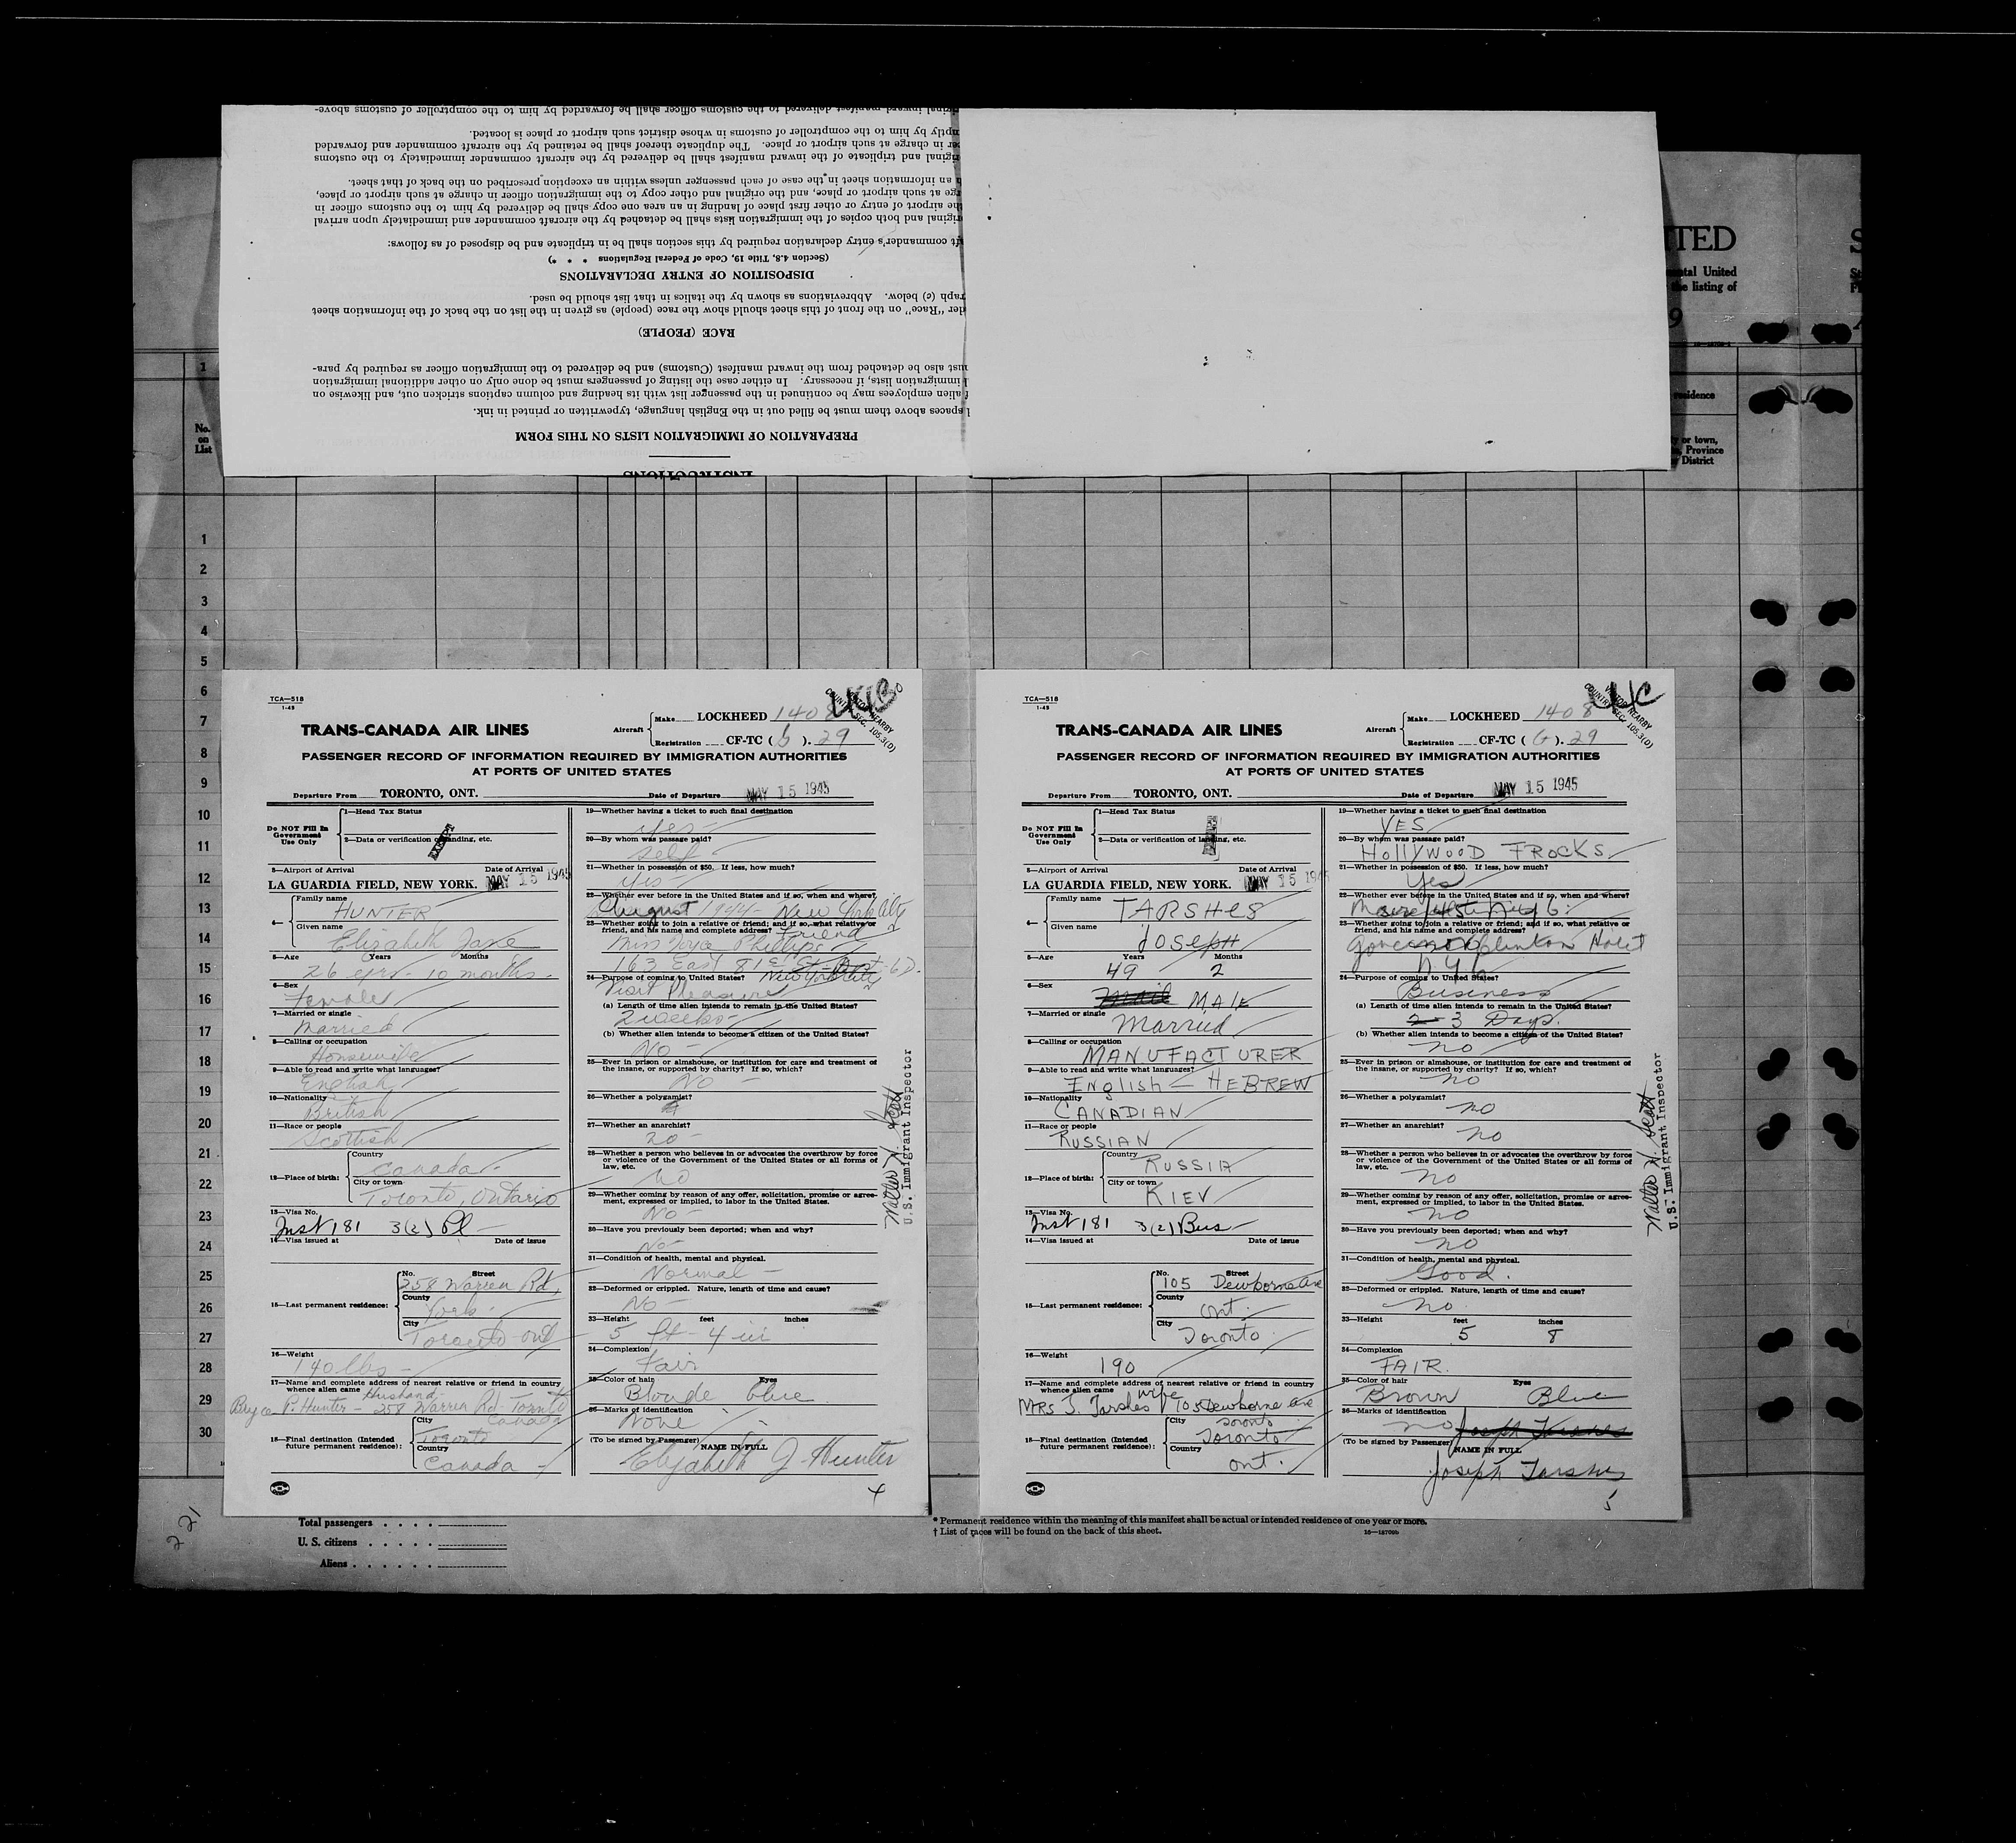 original inward manifest delivered to the customs officer shall be forwarded by him to the comptroller of customs above-
by him to the comptroller of customs in whose district such airport or place is located.
in charge at such airport or place. The duplicate thereof shall be retained by the aircraft commander and forwarded
original and triplicate of the inward manifest shall be delivered by the aircraft commander immediately to the customs
an information sheet in the case of each passenger unless within an exception prescribed on the back of that sheet.
at such airport or place, and the original and other copy to the immigration officer in charge at such airport or place,
the airport of entry or other first place of landing in an area one copy shall be delivered by him to the customs officer in
original and both copies of the immigration lists shall be detached by the aircraft commander and immediately upon arrival
commander's entry declaration required by this section shall be in triplicate and be disposed of as follows:
(Section 4.8, Title 19, Code of Federal Regulations * * *)
DISPOSITION OF ENTRY DECLARATIONS
(c) below. Abbreviations as shown by the italics in that list should be used.
"Race" on the front of this sheet should show the race (people) as given in the list on the back of the information sheet
RACE (PEOPLE)
also be detached from the inward manifest (Customs) and be delivered to the immigration officer as required by para-
immigration lists, if necessary. In either case the listing of passengers must be done only on other additional immigration
alien employees may be continued in the passenger list with its heading and column captions stricken out, and likewise on
spaces above them must be filled out in the English language, typewritten or printed in ink.
PREPARATION OF IMMIGRATION LISTS ON THIS FORM
INSTRUCTIONS
United
the listing of
residence
or town,
Province
District
No.
on
List
1
1
2
3
4
5
6
7
8
9
10
11
12
13
14
15
16
17
18
19
20
21
22
23
24
25
26
27
28
29
30
TCA—518
1-43
TRANS-CANADA AIR LINES
Aircraft Make LOCKHEED 1408
Registration CF-TC ( ). 29
COUNTRY SEC. 105.3(D)
PASSENGER RECORD OF INFORMATION REQUIRED BY IMMIGRATION AUTHORITIES
AT PORTS OF UNITED STATES
Departure From TORONTO, ONT. Date of Departure MAY 15 1945
Do NOT Fill In Government Use Only
1—Head Tax Status
2—Data or verification of landing, etc.
3—Airport of Arrival Date of Arrival
LA GUARDIA FIELD, NEW YORK. MAY 15 1945
4— Family name HUNTER
Given name Elizabeth Jane
5—Age Years Months
26 yrs - 10 months -
6—Sex
Female
7—Married or single
Married
8—Calling or occupation
Housewife
9—Able to read and write what languages?
English
10—Nationality
British
11—Race or people
Scottish
12—Place of birth: Country Canada -
City or town Toronto, Ontario
13—Visa No.
Inst 181 3(2) Pl
14—Visa issued at Date of issue
15—Last permanent residence: No. Street 258 Warren Rd,
County York
City Toronto Ont
16—Weight
140 lbs -
17—Name and complete address of nearest relative or friend in country
whence alien came Husband-
Bryce P. Hunter - 258 Warren Rd - Toronto
Canada
18—Final destination (Intended future permanent residence): City Toronto
Country Canada -
19—Whether having a ticket to such final destination
Yes -
20—By whom was passage paid?
Self
21—Whether in possession of $50. If less, how much?
Yes
22—Whether ever before in the United States and if so, when and where?
August 1944 - New York City
23—Whether going to join a relative or friend; and if so, what relative or
friend, and his name and complete address? Friend
Miss Phillips
163 East 81 St - Apt - 6D.
24—Purpose of coming to United States? New York City
Visit Pleasure
(a) Length of time alien intends to remain in the United States?
2 weeks -
(b) Whether alien intends to become a citizen of the United States?
No -
25—Ever in prison or almshouse, or institution for care and treatment of
the insane, or supported by charity? If so, which?
No -
26—Whether a polygamist?
27—Whether an anarchist?
no -
28—Whether a person who believes in or advocates the overthrow by force
or violence of the Government of the United States or all forms of
law, etc.
No
29—Whether coming by reason of any offer, solicitation, promise or agree-
ment, expressed or implied, to labor in the United States?
No -
30—Have you previously been deported; when and why?
No -
31—Condition of health, mental and physical.
Normal -
32—Deformed or crippled. Nature, length of time and cause?
No -
33—Height feet inches
5 ft - 4 in
34—Complexion
Fair
35—Color of hair Eyes
Blonde blue
36—Marks of identification
None
(To be signed by Passenger) NAME IN FULL
Elizabeth J. Hunter
4
Walter N. Scott
U.S. Immigrant Inspector
TCA—518
1-43
TRANS-CANADA AIR LINES
Aircraft Make LOCKHEED 1408
Registration CF-TC (G). 29
VISITOR NEARBY
COUNTRY SEC. 105.3(D)
PASSENGER RECORD OF INFORMATION REQUIRED BY IMMIGRATION AUTHORITIES
AT PORTS OF UNITED STATES
Departure From TORONTO, ONT. Date of Departure MAY 15 1945
Do NOT Fill In Government Use Only
1—Head Tax Status
2—Data or verification of landing, etc.
3—Airport of Arrival Date of Arrival
LA GUARDIA FIELD, NEW YORK. MAY 15 1945
4— Family name TARSHES
Given name JOSEPH
5—Age Years Months
49 2
6—Sex
MALE
7—Married or single
Married
8—Calling or occupation
MANUFACTURER
9—Able to read and write what languages?
English - HEBREW
10—Nationality
CANADIAN
11—Race or people
RUSSIAN
12—Place of birth: Country RUSSIA
City or town KIEV
13—Visa No.
Inst 181 3(2) Bus
14—Visa issued at Date of issue
15—Last permanent residence: No. Street 105 Dewborne ave
County Ont.
City Toronto
16—Weight
190
17—Name and complete address of nearest relative or friend in country
whence alien came wife
MRS J. Tarshes 105 Dewborne ave
Toronto
18—Final destination (Intended future permanent residence): City Toronto
Country Ont.
19—Whether having a ticket to such final destination
YES
20—By whom was passage paid?
HOLLYWOOD FROCKS
21—Whether in possession of $50. If less, how much?
Yes
22—Whether ever before in the United States and if so, when and where?
23—Whether going to join a relative or friend; and if so, what relative or
friend, and his name and complete address?
Governor Clinton Hotel
N Y C
24—Purpose of coming to United States?
Business
(a) Length of time alien intends to remain in the United States?
2 - 3 Days.
(b) Whether alien intends to become a citizen of the United States?
no
25—Ever in prison or almshouse, or institution for care and treatment of
the insane, or supported by charity? If so, which?
no
26—Whether a polygamist?
no
27—Whether an anarchist?
no
28—Whether a person who believes in or advocates the overthrow by force
or violence of the Government of the United States or all forms of
law, etc.
no
29—Whether coming by reason of any offer, solicitation, promise or agree-
ment, expressed or implied, to labor in the United States?
no
30—Have you previously been deported; when and why?
no
31—Condition of health, mental and physical.
Good.
32—Deformed or crippled. Nature, length of time and cause?
no
33—Height feet inches
5 8
34—Complexion
FAIR.
35—Color of hair Eyes
Brown Blue
36—Marks of identification
no Joseph Tarshes
(To be signed by Passenger) NAME IN FULL
Joseph Tarshes
5
Walter N. Scott
U.S. Immigrant Inspector
221
Total passengers . . . .
U. S. citizens . . . . .
Aliens . . . . . .
* Permanent residence within the meaning of this manifest shall be actual or intended residence of one year or more.
† List of races will be found on the back of this sheet.